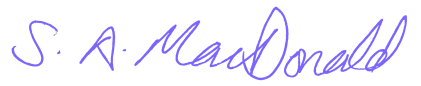 S. A. MacDonald